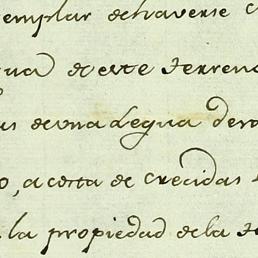 emplar de haverse
gua de este terreno
as de una Legua de
o, a costa de crecidas
la propiedad de la